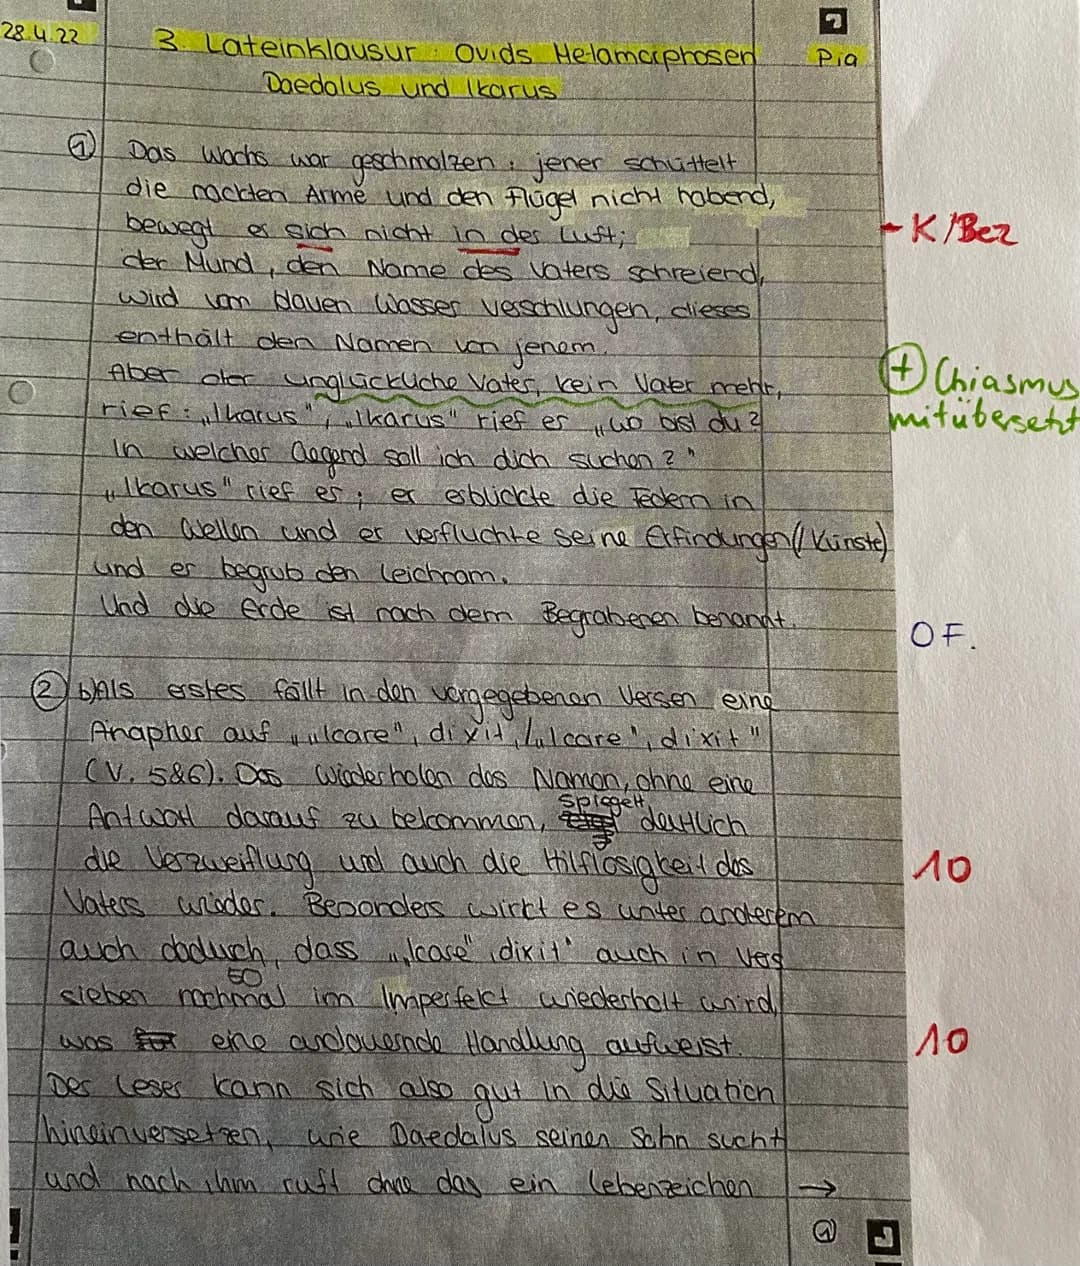 28.4.22
3. Lateinklausur: Ovids Metamorphosen
Pia
Daedalus und Ikarus
① Das Wachs war geschmolzen; jener schüttelt
die nackten Arme und den Flügel nicht habend,
bewegt er sich nicht in der Luft;
- K/Bez
der Mund, den Name des Vaters schreiend,
wird vom blauen Wasser verschlungen, dieses
enthält den Namen von jenem.
Aber der unglückliche Vater, kein Vater mehr,
⊕ Chiasmus
mitübersetzt
rief: „Ikarus", „Ikarus" rief er „wo bist du?
In welcher Gegend soll ich dich suchen?"
„Ikarus" rief er; er erblickte die Federn in
den Wellen und er verfluchte seine Erfindungen (/Künste)
und er begrub den Leichnam.
Und die Erde ist nach dem Begrabenen benannt.
OF.
② b) Als erstes fällt in den vorgegebenen Versen eine
Anapher auf „„Icare", dixit, / „Icare", dixit"
(V. 5&6). Das Wiederholen des Namen, ohne eine
Antwort darauf zu bekommen, spiegelt deutlich
die Verzweiflung und auch die Hilflosigkeit des
10
Vaters wieder. Besonders wirkt es unter anderem
auch daduch, dass „„Icare" dixit" auch in Vers
sieben nochmal so im Imperfekt wiederholt wird,
was eine andauernde Handlung aufweist.
10
Der Leser kann sich also gut in die Situation
hineinversetzen, wie Daedalus seinen Sohn sucht
und nach ihm ruft ohne das ein Lebenzeichen →
①